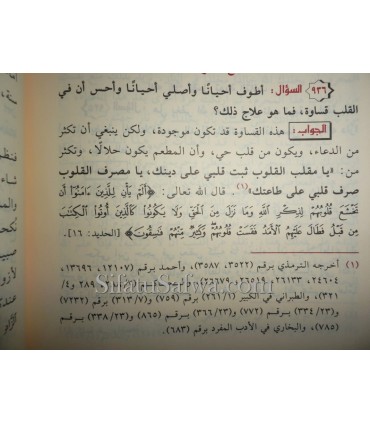 ٩٣٦ السؤال: أطوف أحيانًا وأصلي أحيانًا وأحس أن في
القلب قساوة، فما هو علاج ذلك؟
الجواب: هذه القساوة قد تكون موجودة، ولكن ينبغي أن تكثر
من الدعاء، ويكون من قلب حي، وأن المطعم يكون حلالًا، وتكثر
من: «يا مقلب القلوب ثبت قلبي على دينك، يا مصرف القلوب
صرف قلبي على طاعتك»(١). قال الله تعالى: ﴿أَلَمْ يَأْنِ لِلَّذِينَ ءَامَنُوٓا۟ أَن
تَخْشَعَ قُلُوبُهُمْ لِذِكْرِ ٱللَّهِ وَمَا نَزَلَ مِنَ ٱلْحَقِّ وَلَا يَكُونُوا۟ كَٱلَّذِينَ أُوتُوا۟ ٱلْكِتَٰبَ
مِن قَبْلُ فَطَالَ عَلَيْهِمُ ٱلْأَمَدُ فَقَسَتْ قُلُوبُهُمْ وَكَثِيرٌ مِّنْهُمْ فَٰسِقُونَ﴾ [الحديد: ١٦].
(١) أخرجه الترمذي برقم (٣٥٢٢، ٣٥٨٧)، وأحمد برقم (١٢١٠٧، ١٣٦٩٦،
٢٤٦٠٤، ٢٦١٣٣، ٢٦٥١٩، ٢٦٦٧٩
٣٢١)، والطبراني في الكبير (٢٦١/١) برقم (٧٥٩) و(٣١٣/٧) برقم (٧٢٣٢)
(٣٣٤/٢٣) برقم (٧٧٢) و(٣٦٦/٢٣) برقم (٨٦٥) و(٣٣٨/٢٣) برقم
(٧٨٥)، والبخاري في الأدب المفرد برقم (٦٨٣).
SifatuSafwa.com